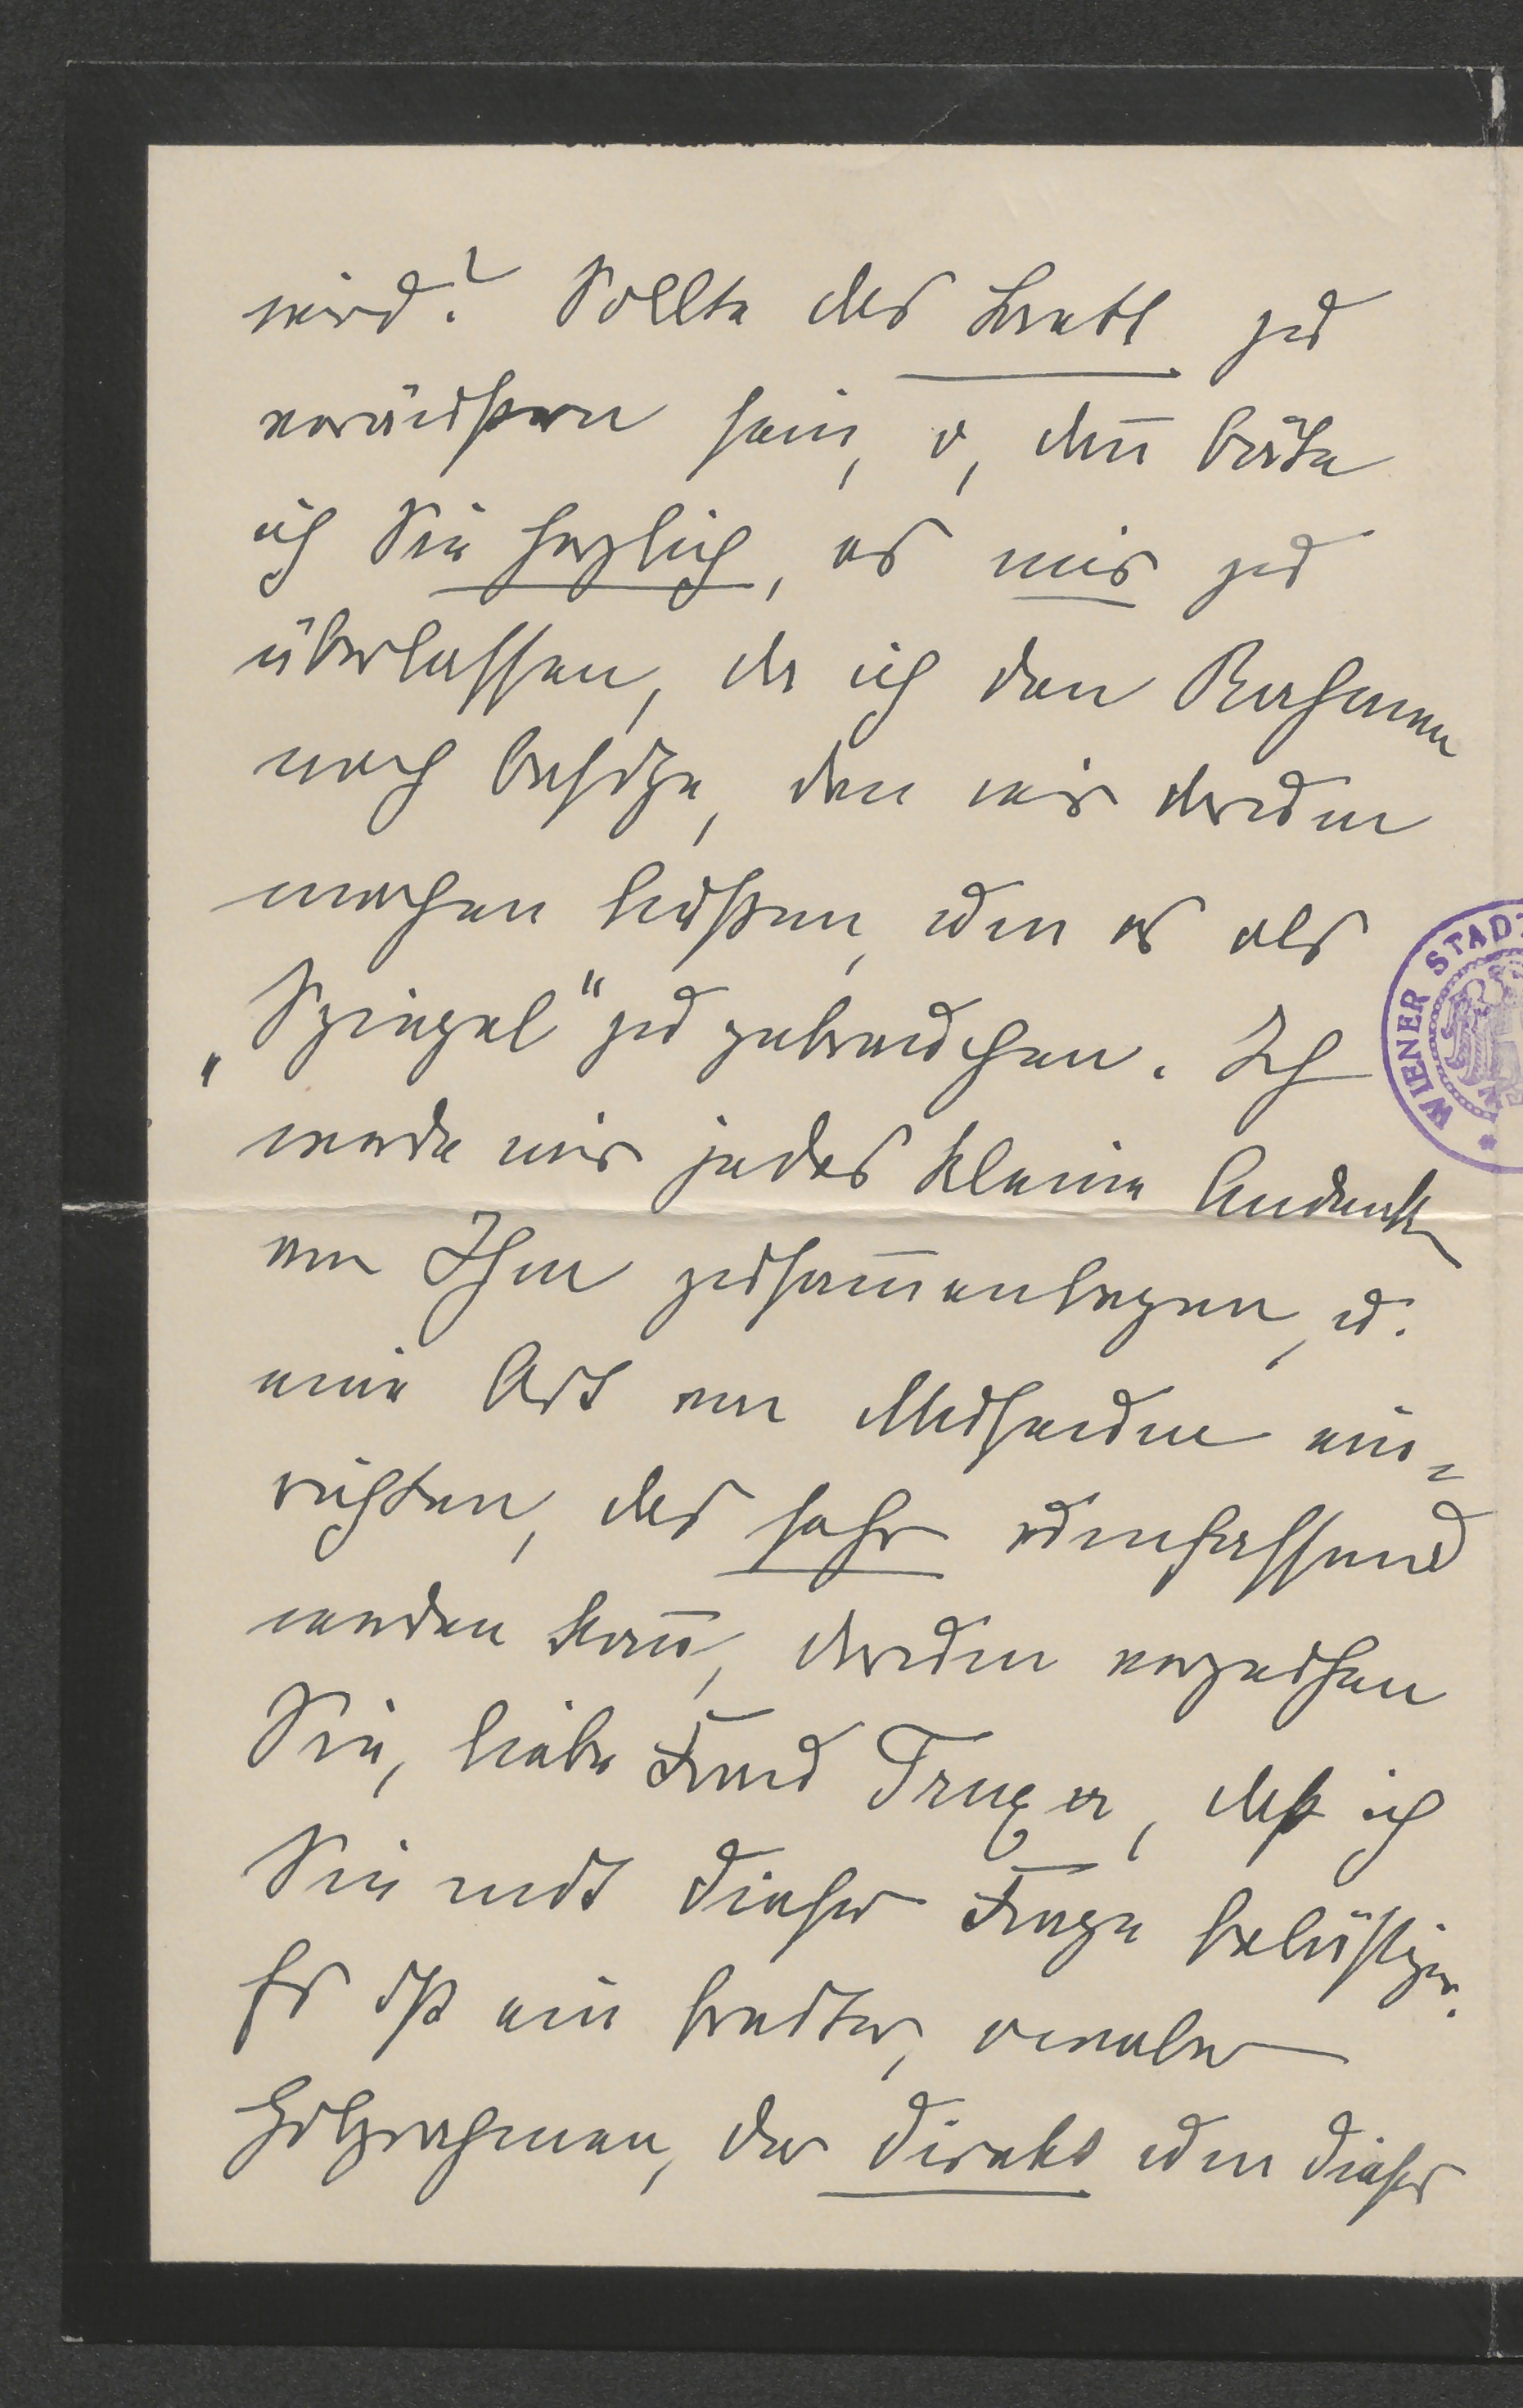 wird? Sollte das Brett zu
veräußern sein, o, dañ bäte
ich Sie herzlich, es mir zu
überlassen, da ich den Rahmen
noch besitze, den wir darum
machen ließen, um es als
„Spiegel“ zu gebrauchen. Ich
werde mir jedes kleine Andenken
an Ihn zusam̄enlegen, u.
eine Art von Museum ein=
richten, das sehr umfassend
werden kañ, darum verzeihen
Sie, liebe Frau Truxa, daß ich
Sie mit dieser Frage belästige.
Es ist ein breiter, ovaler
Holzrahmen, der direkt um dieses
WIENER STADT